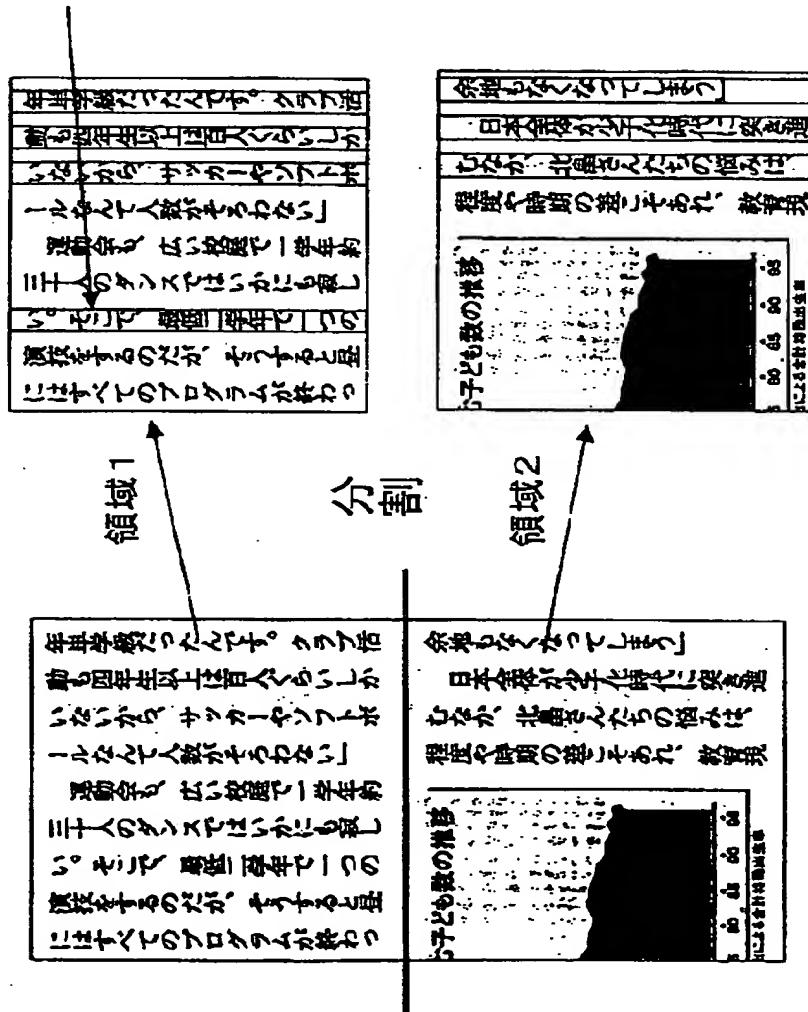 年単学級だったんです。クラブ活
動も四年生以上は百人くらいしか
いないから、サッカーやソフトボ
ールなんて人数がそろわない」
運動会も、広い校庭で一学年約
三十人のダンスではいかにも寂し
い。そこで、最低二学年で一つの
演技をするのだが、そうすると昼
にはすべてのプログラムが終わっ
余地もなくなってしまう」
日本全体が少子化時代に突き進
むなか、北畠さんたちの悩みは、
程度や時期の差こそあれ、教育現
子ども数の推移
5 80 85 90 95
による合計特殊出生率
分割
領域1
年単学級だったんです。クラブ活
動も四年生以上は百人くらいしか
いないから、サッカーやソフトボ
ールなんて人数がそろわない」
運動会も、広い校庭で一学年約
三十人のダンスではいかにも寂し
い。そこで、最低二学年で一つの
演技をするのだが、そうすると昼
にはすべてのプログラムが終わっ
領域2
余地もなくなってしまう」
日本全体が少子化時代に突き進
むなか、北畠さんたちの悩みは、
程度や時期の差こそあれ、教育現
子ども数の推移
5 80 85 90 95
による合計特殊出生率